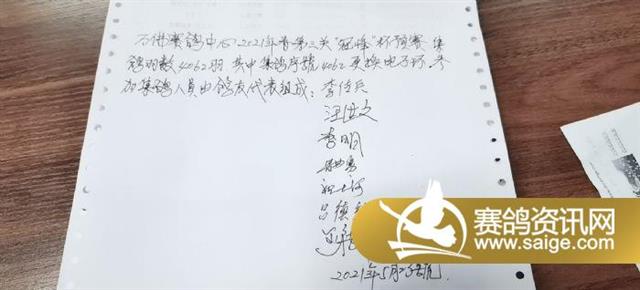 赛鸽中心2021年春第三关"冠峰"杯预赛集
鸽羽数4062羽其中集鸽序號4062更换电子环.参
加集鸽人员由鸽友代表组成:李传兵
汪世文
李明
吕德
2021年5月
赛鸽资讯网
www.saige.com